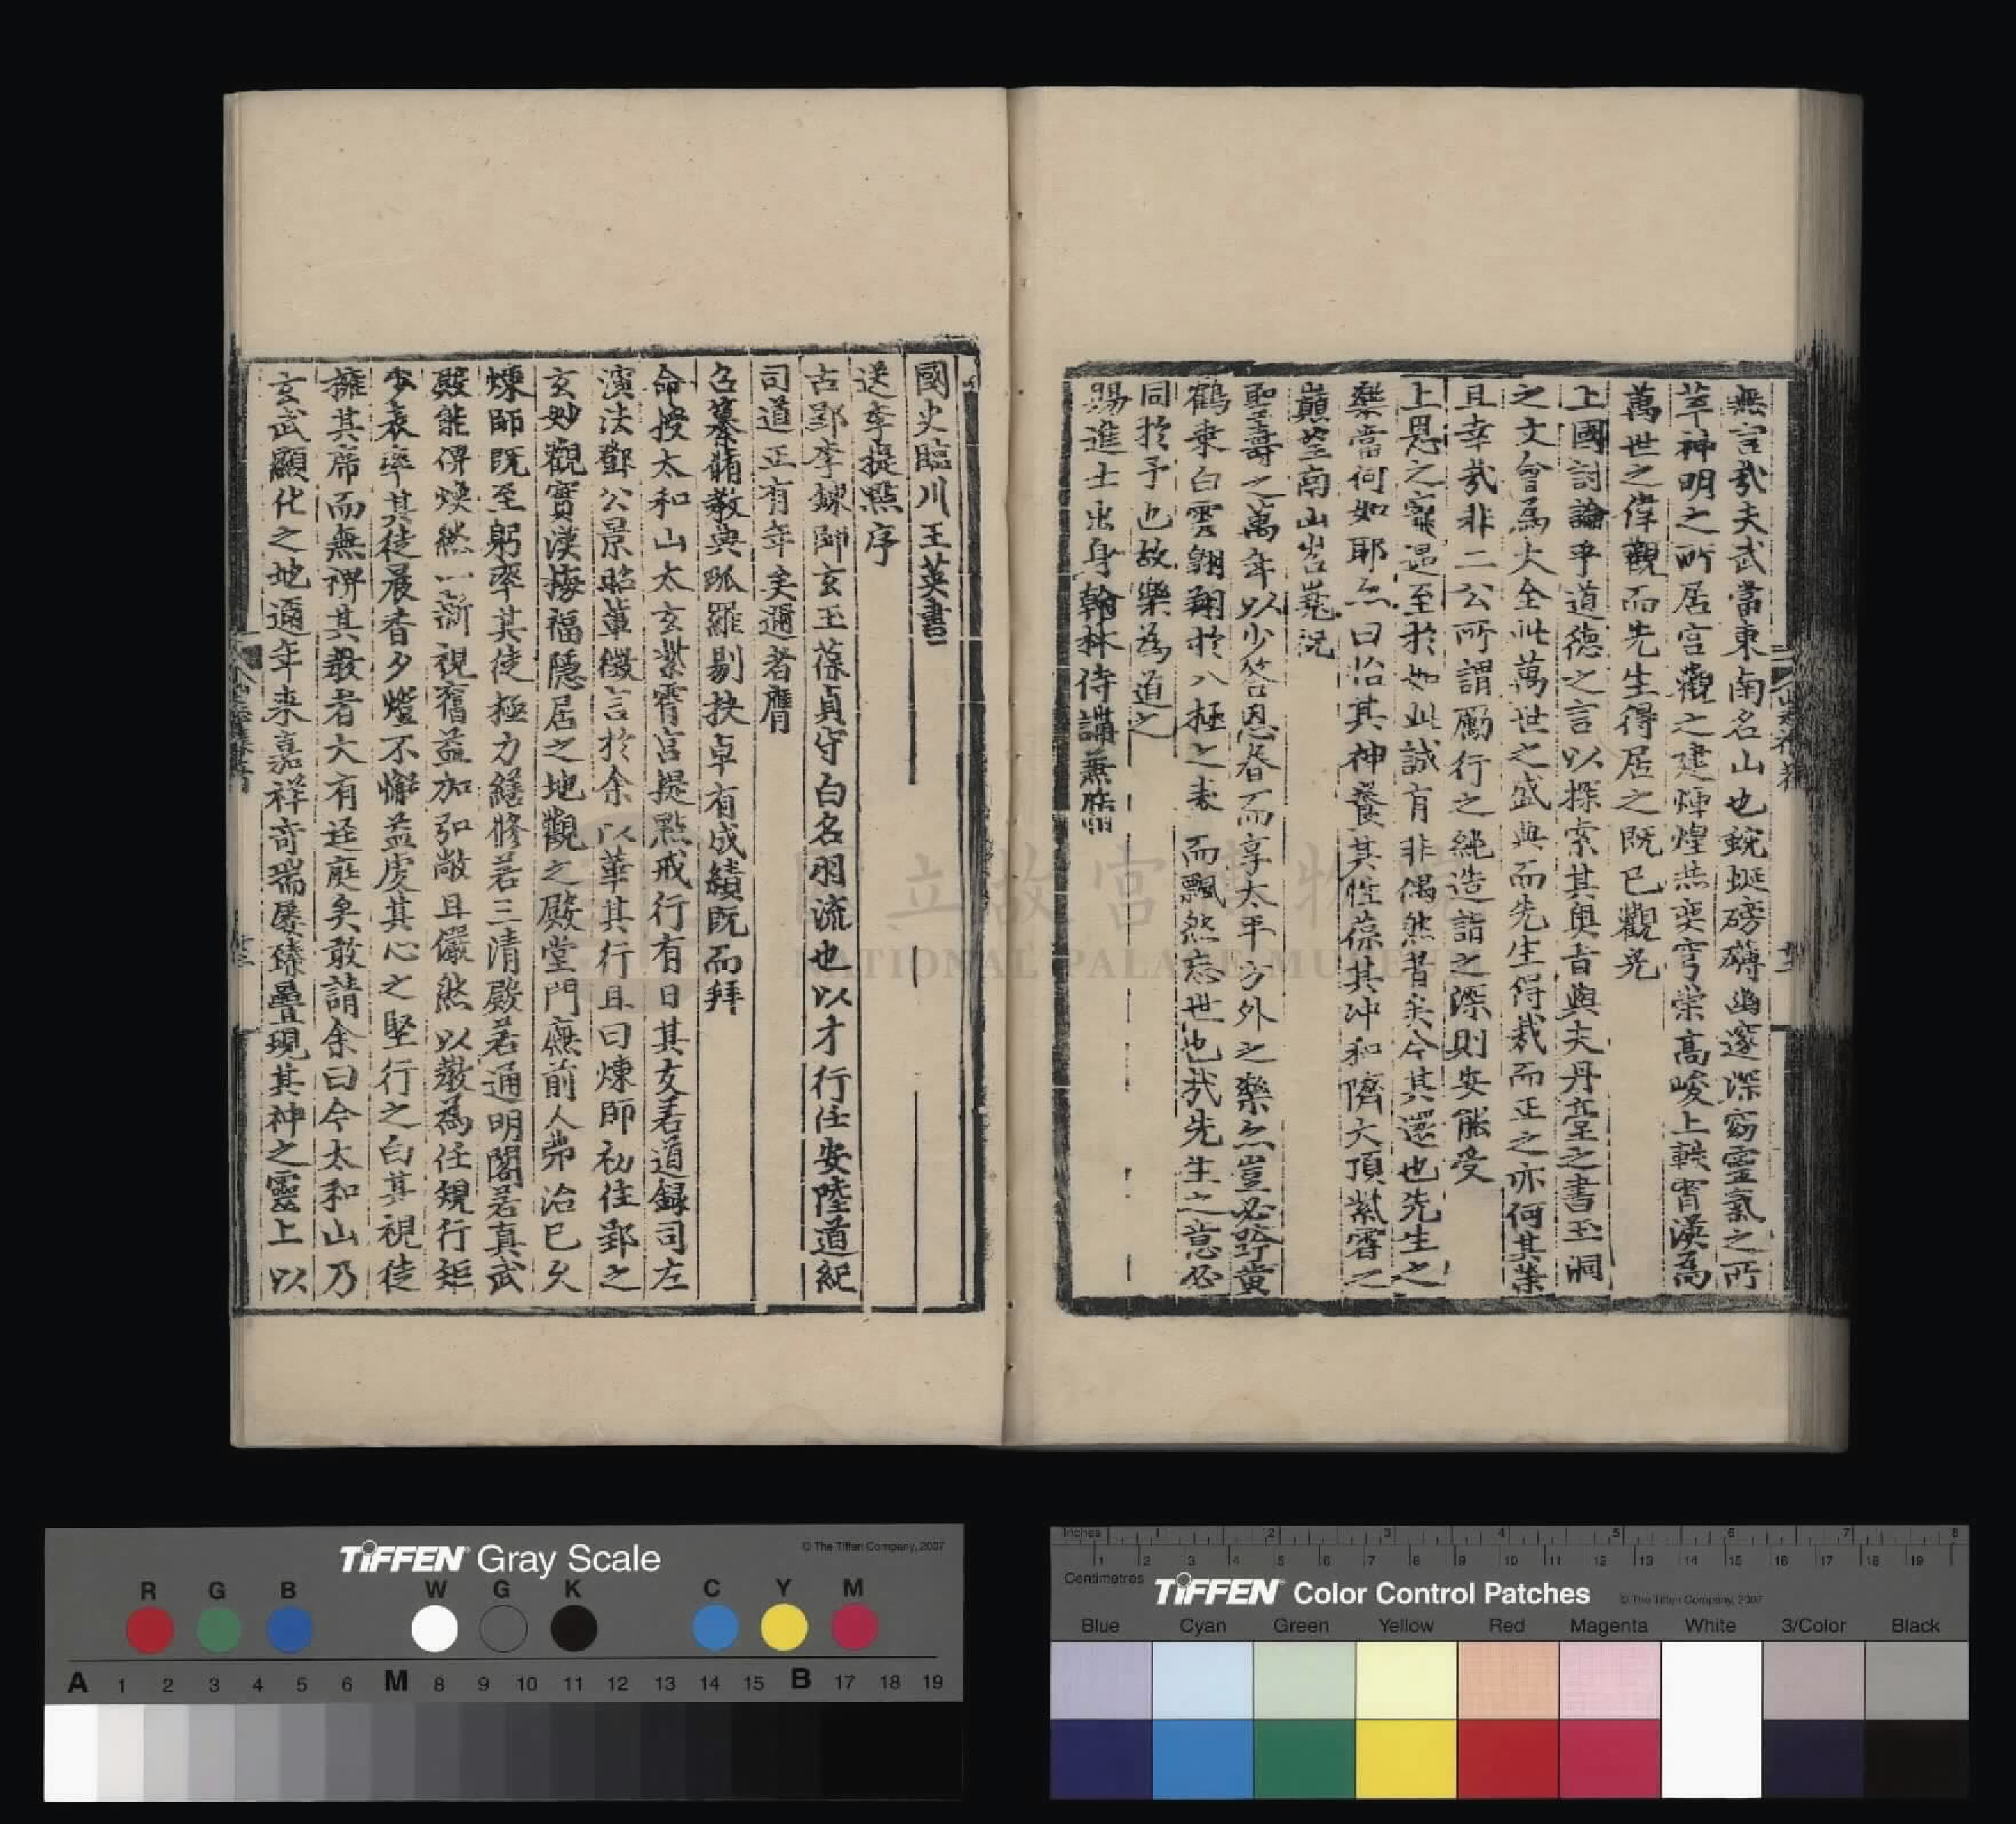 無言哉夫武當東南名山也蜿蜒磅礴幽邃深窈靈氣之所
萃神明之所居宮觀之建煇煌燕奕穹崇高峻上軼霄漢為
萬世之偉觀而先生得居之既已觀光
上國討論乎道德之言以探索其奧旨與夫丹臺之書玉洞
之文會為大全此萬世之盛典而先生得裁而正之亦何其榮
且幸哉非二公所謂勵行之純造詣之深則安能受
上恩之寵遇至於如此誠有非偶然者矣今其還也先生之
樂當何如耶亦曰怡其神養其性葆其冲和隮大頂紫霄之
巔望南山岧嶤況
聖壽之萬年以少答恩眷而享太平方外之樂亦豈必跨黃
鶴乘白雲翱翔於八極之表而飄然忘世也哉先生之意必
同於予也故樂為道之
賜進士出身翰林侍講兼脩
國史臨川王英書
送李提點序
古郢李鍊師玄玉葆貞守白名羽流也以才行任安陸道紀
司道正有年矣邇者膺
召纂脩教典爬羅剔抉卓有成績既而拜
命授太和山太玄紫霄宮提點戒行有日其友若道録司左
演法鄧公景昭輩徵言於余以華其行且曰煉師初住郢之
玄妙觀實漢梅福隱居之地觀之殿堂門廡前人弗治已久
煉師既至躬率其徒極力繕修若三清殿若通明閣若真武
殿能俾煥然一新視舊益加弘敞且儼然以教為任規行矩
步表率其徒晨香夕燈不懈益虔其心之堅行之白其視徒
擁其席而無裨其教者大有逕庭矣敢請余曰今太和山乃
玄武顯化之地邇年来嘉祥奇瑞屢臻疊現其神之靈上以
國立故宮博物院
NATIONAL PALACE MUSEUM
TIFFEN Gray Scale
© The Tiffen Company, 2007
R G B W G K C Y M
A 1 2 3 4 5 6 M 8 9 10 11 12 13 14 15 B 17 18 19
Inches 1 2 3 4 5 6 7 8
1 2 3 4 5 6 7 8 9 10 11 12 13 14 15 16 17 18 19
Centimetres
TIFFEN Color Control Patches
© The Tiffen Company, 2007
Blue Cyan Green Yellow Red Magenta White 3/Color Black